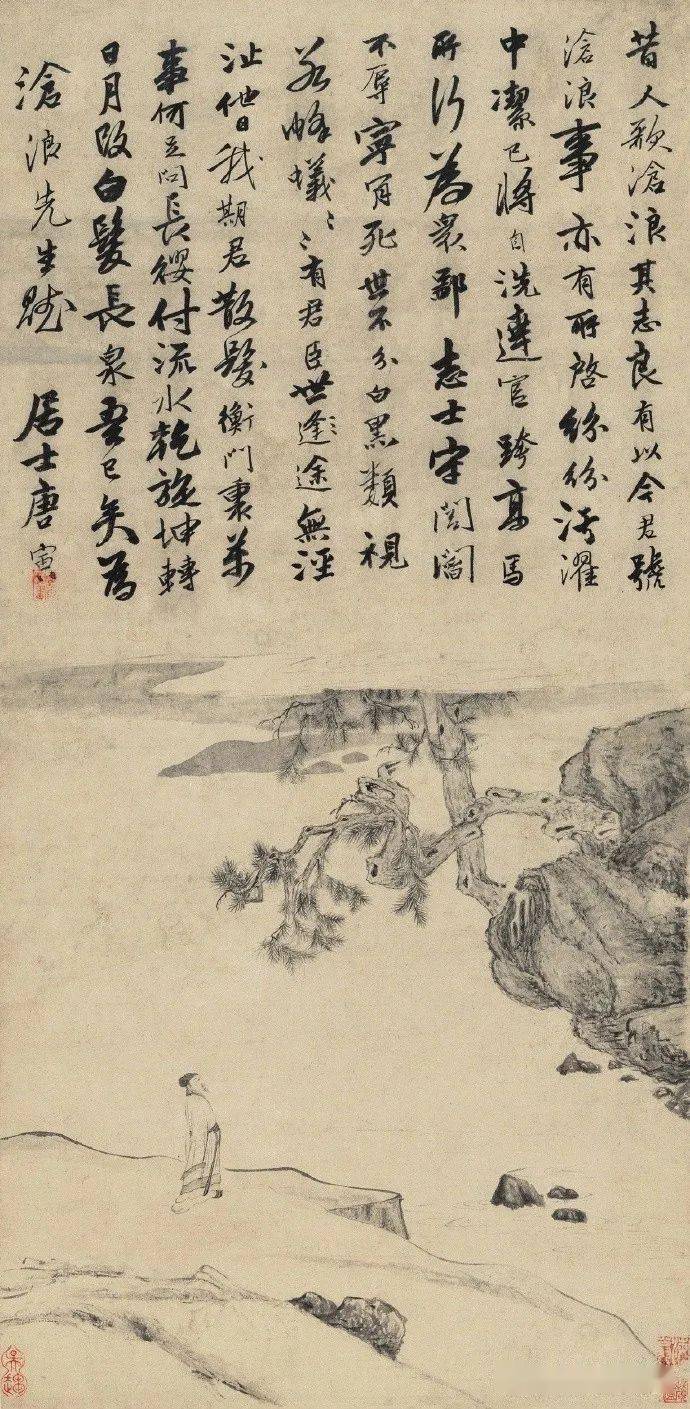 昔人歌滄浪其志良有以今君號
滄浪事亦有所啓紛紛污濯
中潔已將自洗達官跨高馬
所行為衆鄙志士守閭閻
不辱寧肎死世不分白黑類視
若蜂蟻〻〻有君臣世逢途無涇
沚他日我期君散髮衡門裏萬
事何足問長纓付流水乾旋坤轉
日月改白髮長泉吾已矣為
滄浪先生賦 居士唐寅